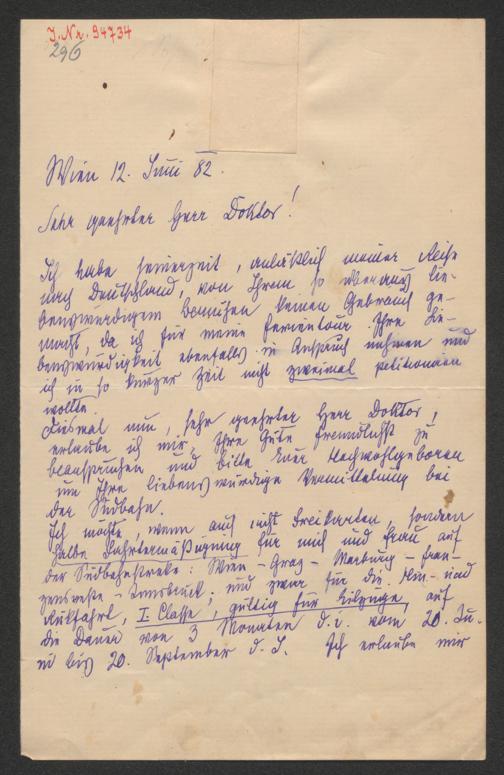 I. Nr. 94734
296
Wien 12. Juni 82.
Sehr geehrter Herr Doktor!
Ich habe seinerzeit, anläßlich meiner Reise
nach Deutschland, von Ihrem so überaus lie-
benswürdigem Bemühen keinen Gebrauch ge-
macht, da ich für meine Ferientour Ihre Lie-
benswürdigkeit ebenfalls in Anspruch nehmen und
ich in so kurzer Zeit nicht zweimal petitioniren
wollte.
Diesmal nun, sehr geehrter Herr Doktor,
erlaube ich mir, Ihre Güte freundlichst zu
beanspruchen und bitte Euer Hochwohlgeboren
um Ihre liebenswürdige Vermittelung bei
der Südbahn.
Ich möchte, wenn auch nicht Freikarten, sondern
halbe Fahrtermäßigung für mich und Frau auf
der Südbahnstrecke: Wien - Graz - Marburg - Fran-
zensveste - Innsbruck; und zwar für die Hin- und
Rückfahrt, II. Classe, giltig für Eilzüge, auf
die Dauer von 3 Monaten d. i. vom 20. Ju-
ni bis 20. September d. J. Ich erlaube mir